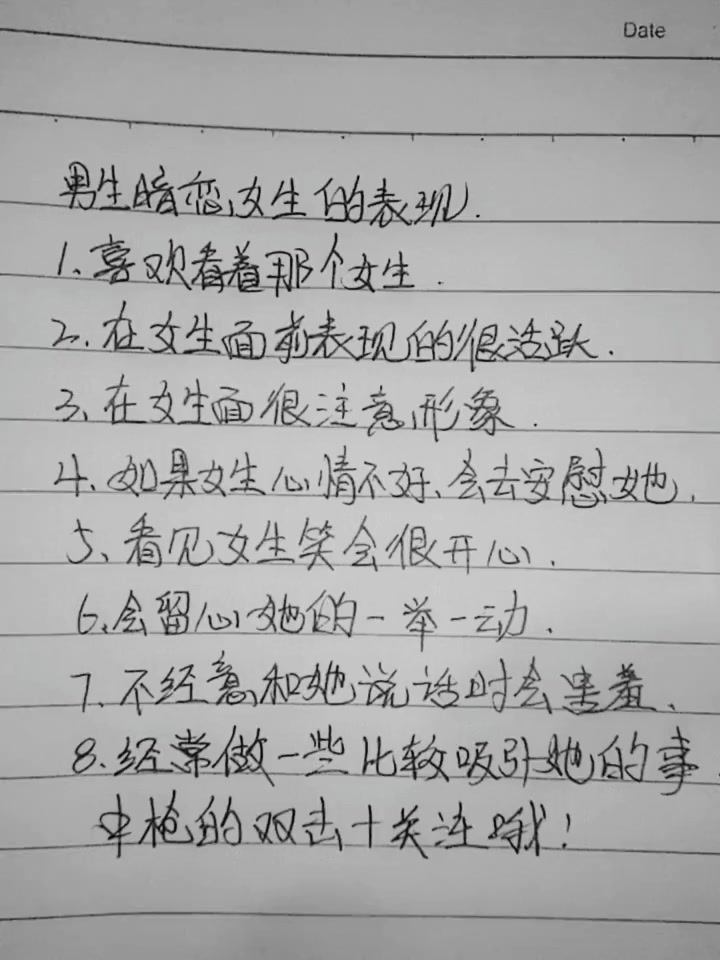 Date
男生暗恋女生的表现.
1、喜欢看着那个女生.
2、在女生面前表现的很活跃.
3、在女生面很注意形象.
4、如果女生心情不好、会去安慰她.
5、看见女生笑会很开心.
6、会留心她的一举一动.
7、不经意和她说话时会害羞、
8、经常做一些比较吸引她的事.
中枪的双击+关注哦!